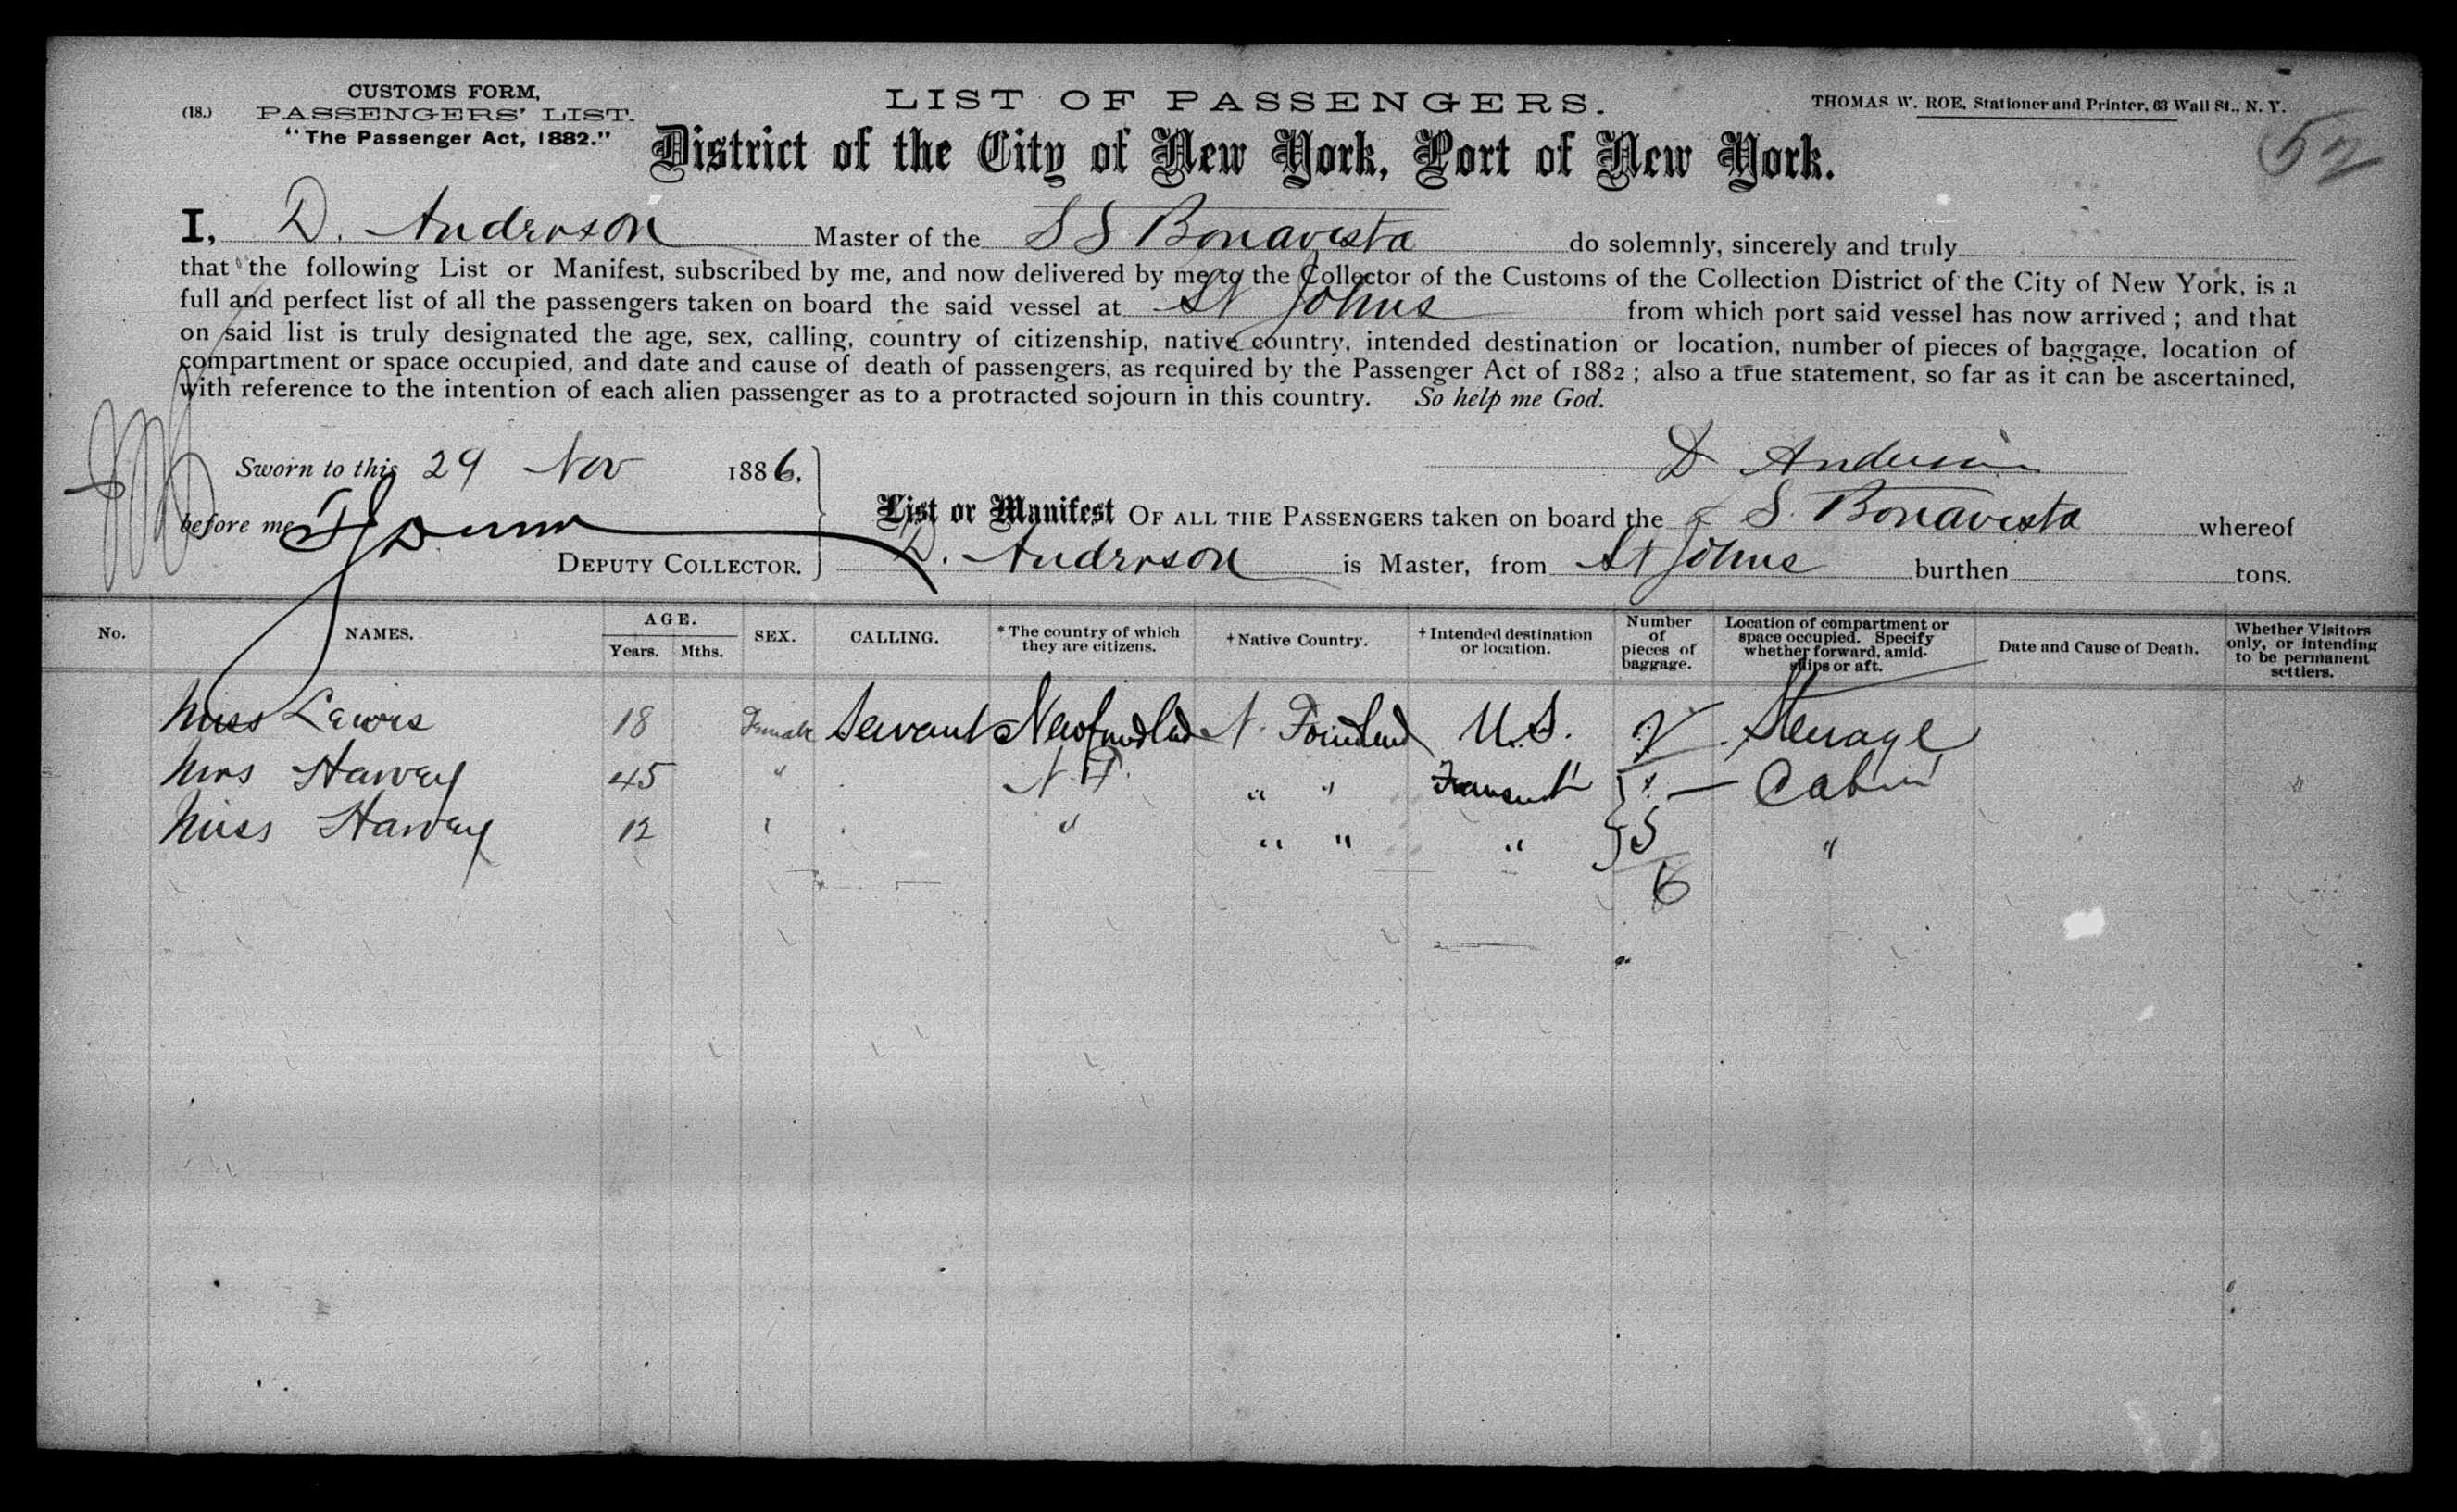 (18.)
CUSTOMS FORM,
PASSENGERS' LIST.
"The Passenger Act, 1882."
LIST OF PASSENGERS.
THOMAS W. ROE, Stationer and Printer, 63 Wall St., N. Y.
52
District of the City of New York, Port of New York.
I, D. Anderson Master of the S S Bonavista do solemnly, sincerely and truly
that the following List or Manifest, subscribed by me, and now delivered by me to the Collector of the Customs of the Collection District of the City of New York, is a
full and perfect list of all the passengers taken on board the said vessel at St Johns from which port said vessel has now arrived; and that
on said list is truly designated the age, sex, calling, country of citizenship, native country, intended destination or location, number of pieces of baggage, location of
compartment or space occupied, and date and cause of death of passengers, as required by the Passenger Act of 1882; also a true statement, so far as it can be ascertained,
with reference to the intention of each alien passenger as to a protracted sojourn in this country. So help me God.
Sworn to this 29 Nov 1886,
D Anderson
before me
DEPUTY COLLECTOR.
List or Manifest OF ALL THE PASSENGERS taken on board the S. Bonavista whereof
D. Anderson is Master, from St Johns burthen tons.
No.
NAMES.
AGE.
Years. Mths.
SEX.
CALLING.
*The country of which
they are citizens.
+Native Country.
+Intended destination
or location.
Number
of
pieces of
baggage.
Location of compartment or
space occupied. Specify
whether forward, amid-
ships or aft.
Date and Cause of Death.
Whether Visitors
only, or intending
to be permanent
settlers.
Miss Lewis 18 Female Servant Newfoundland N. Foundland U.S. Steerage
Mrs Harvey 45 " N.F. " " Transit Cabin
Miss Harvey 12 " " " " 5 "
6